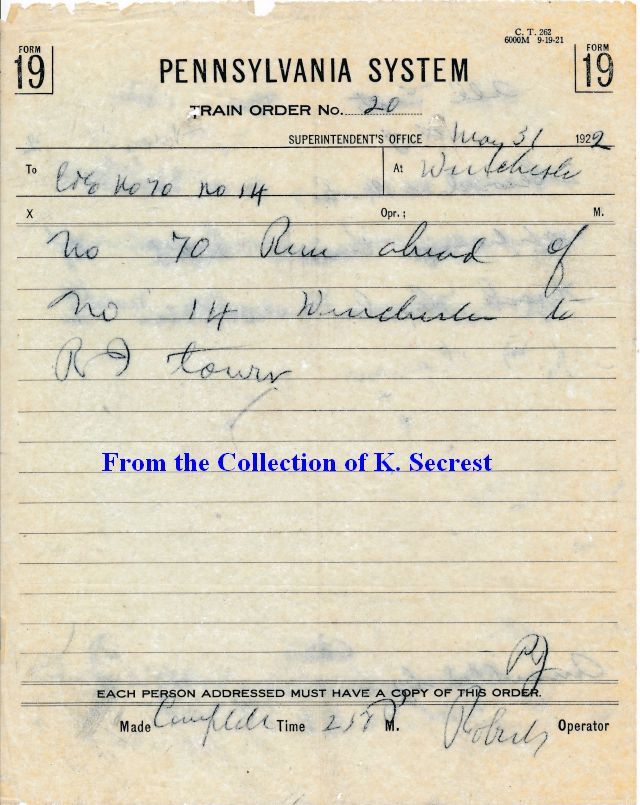 C. T. 262
6000M 9-19-21
FORM
19
FORM
19
PENNSYLVANIA SYSTEM
TRAIN ORDER No. 20
SUPERINTENDENT'S OFFICE May 31 1922
To C&E No 70 No 14 At Winchester
X Opr.; M.
No 70 Run ahead of
No 14 Winchester to
R J town
From the Collection of K. Secrest
EACH PERSON ADDRESSED MUST HAVE A COPY OF THIS ORDER.
Made Complete Time P M. Roberts Operator